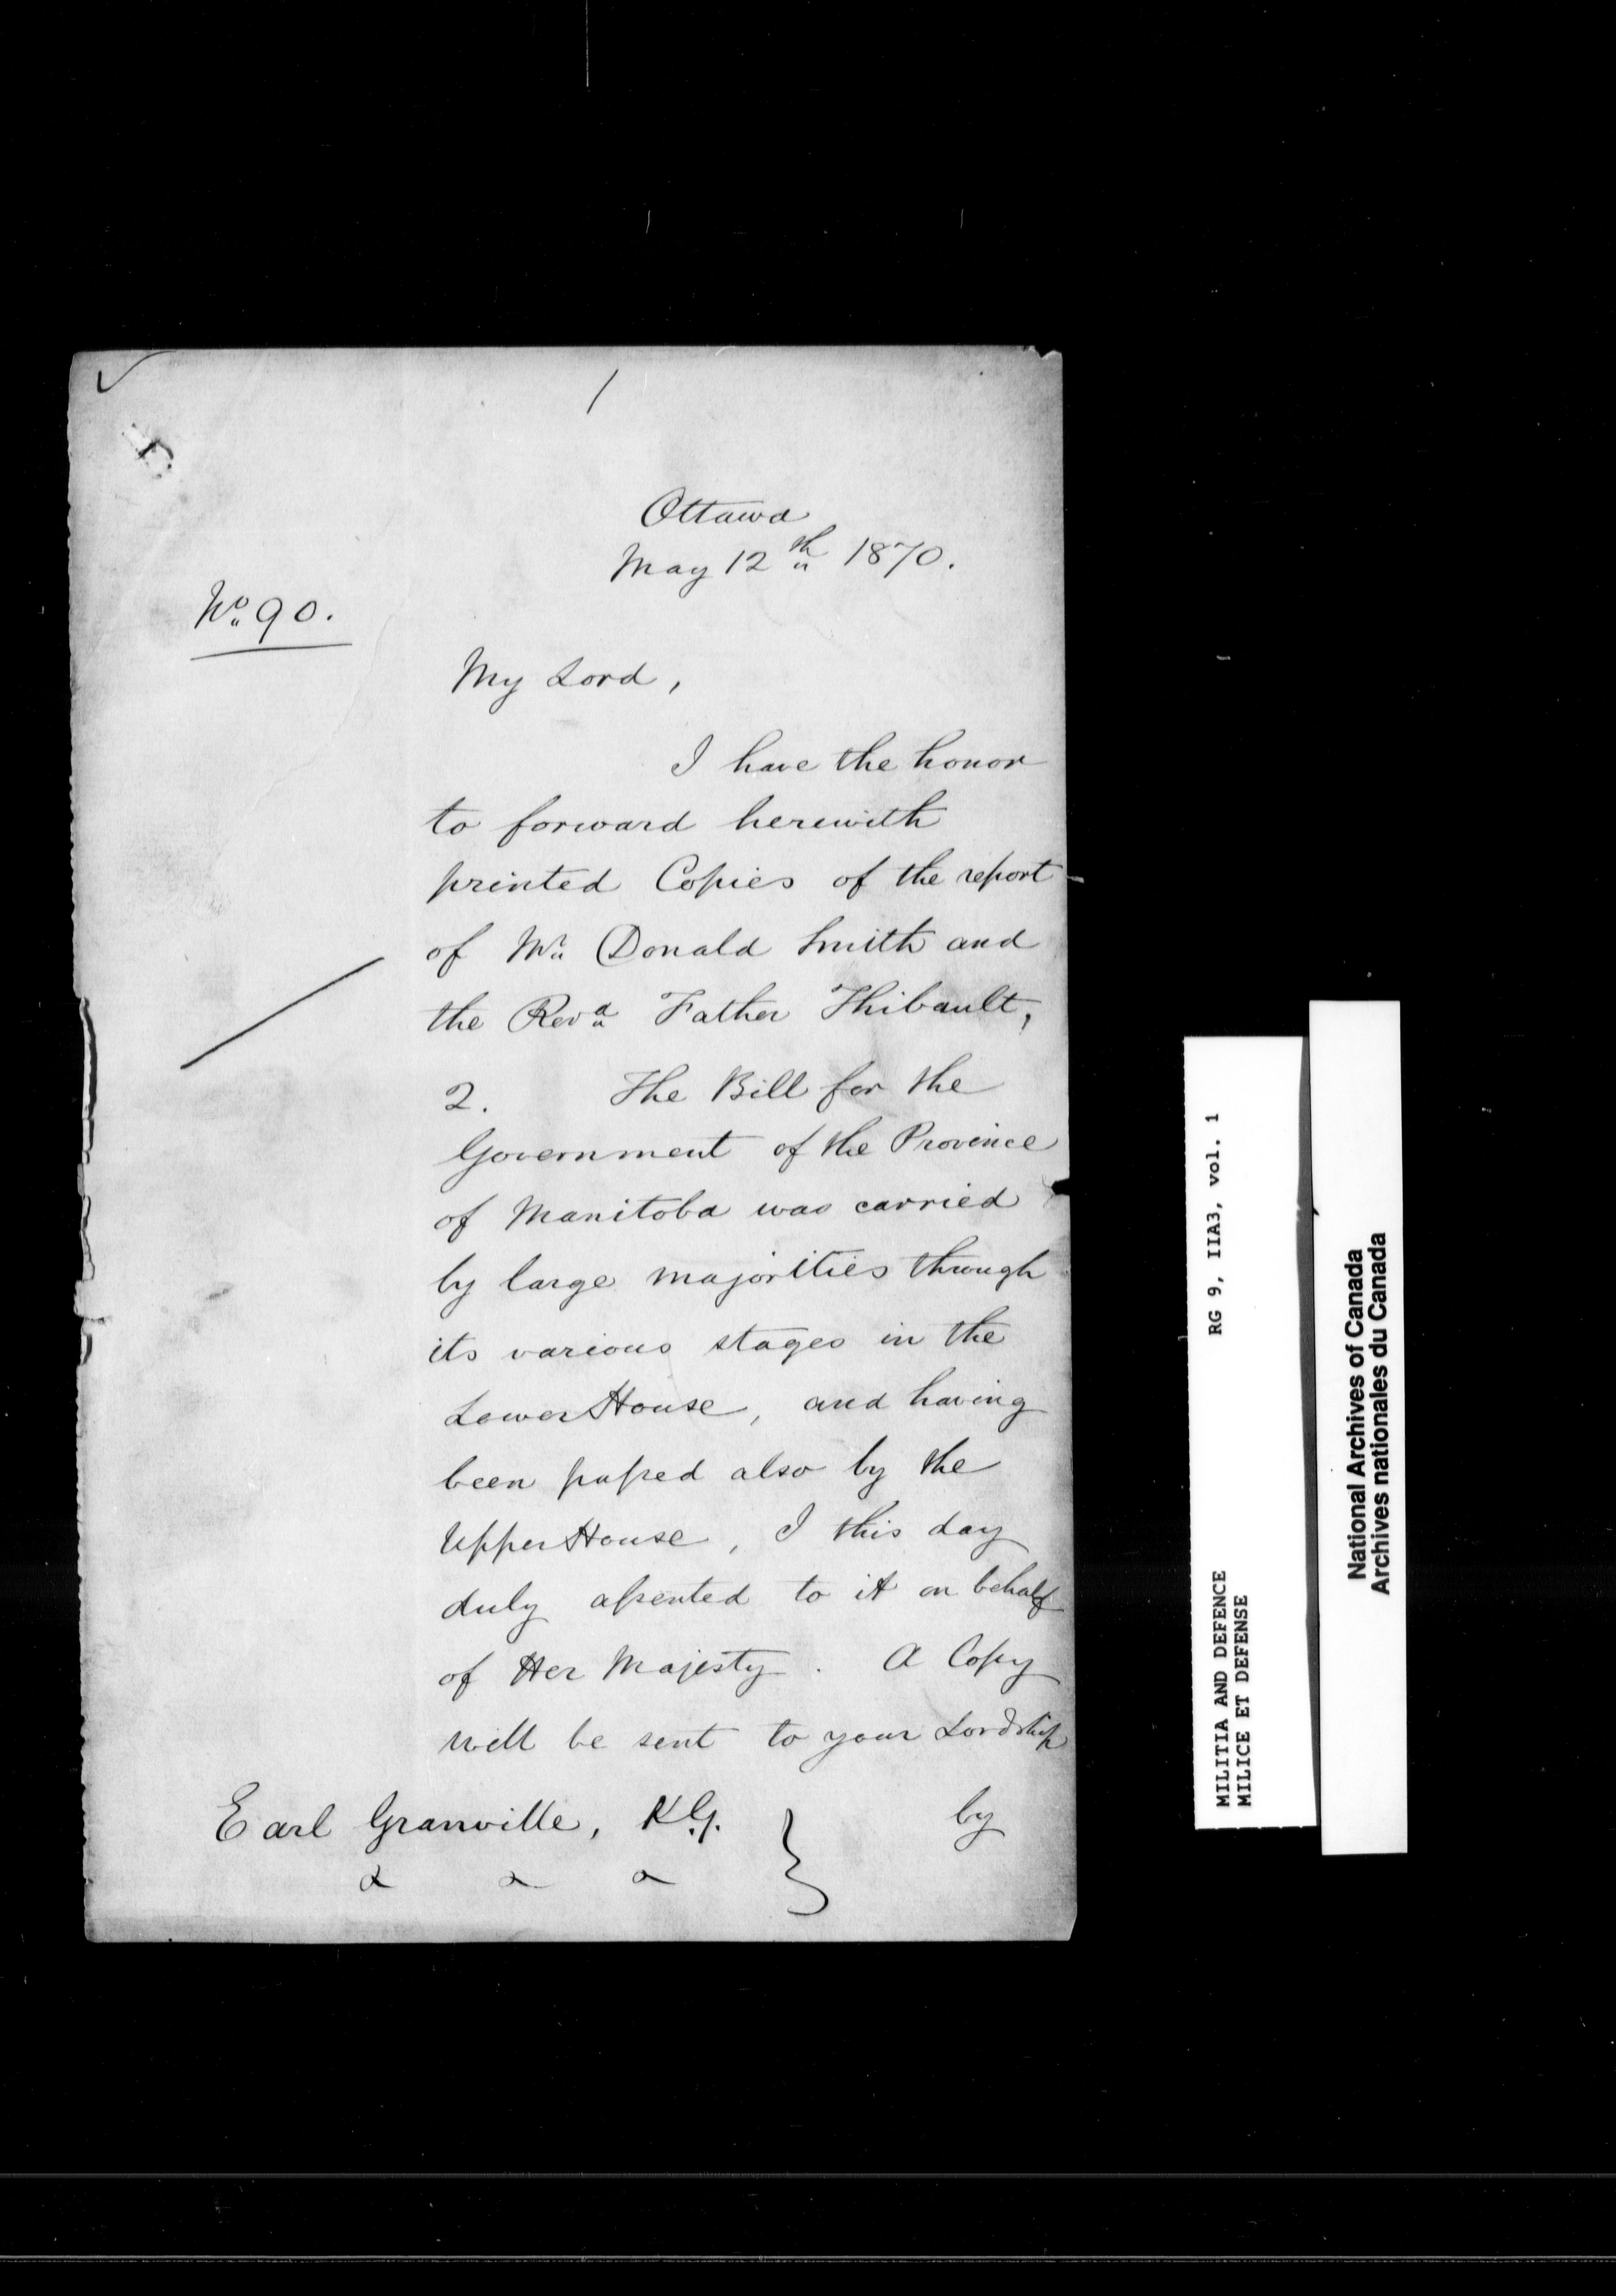 1
Ottawa
May 12th 1870.
No. 90.
My Lord,
I have the honor
to forward herewith
printed Copies of the report
of Mr. Donald Smith and
the Revd Father Thibault,
2. The Bill for the
Government of the Province
of Manitoba was carried
by large majorities through
its various stages in the
Lower House, and having
been passed also by the
Upper House, I this day
duly assented to it on behalf
of Her Majesty. A Copy
will be sent to your Lordship
by
Earl Granville, K.G.
RG 9, IIA3, vol. 1
MILITIA AND DEFENCE
MILICE ET DEFENSE
National Archives of Canada
Archives nationales du Canada